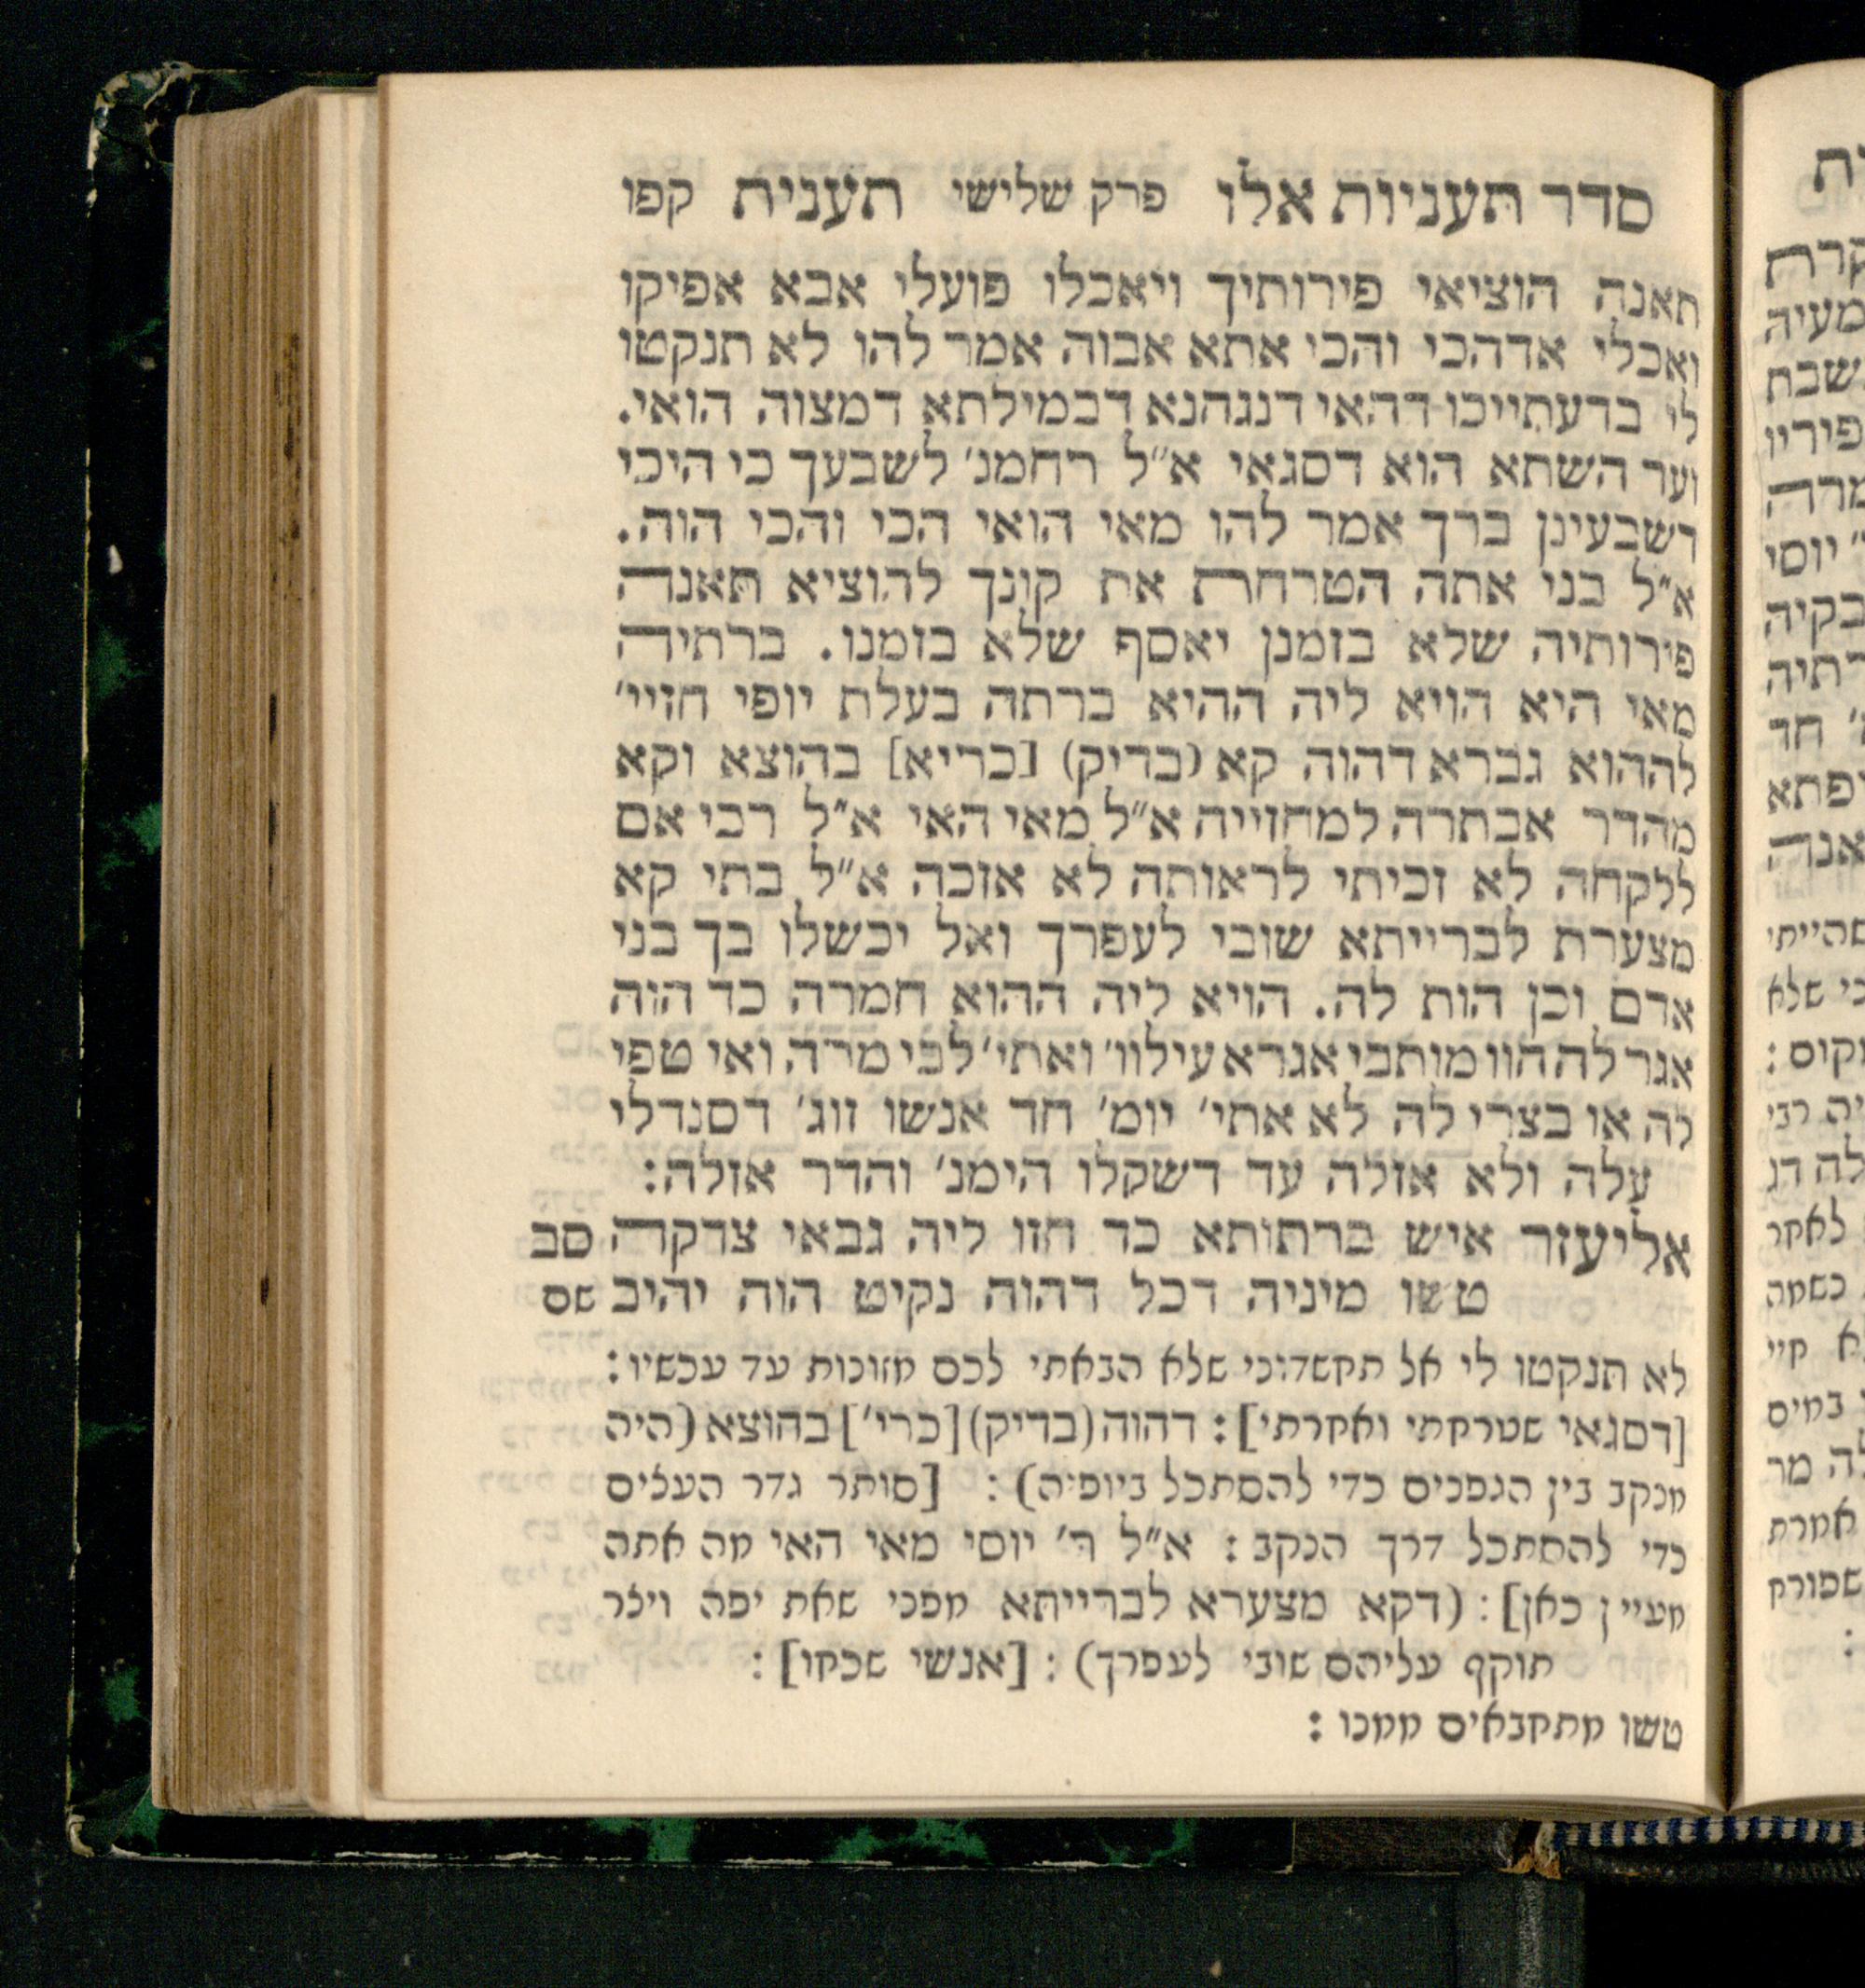 סדר תעניות אלו פרק שלישי תענית קפו
תאנה הוציאי פירותיך ויאכלו פועלי אבא אפיקו
ואכלי אדהכי והכי אתא אבוה אמר להו לא תנקטו
לי בדעתייכו דהאי דנגהנא דבמילתא דמצוה הואי.
ועד השתא הוא דסגאי א״ל רחמנ׳ לשבעך כי היכי
דשבעינן ברך אמר להו מאי הואי הכי והכי הוה.
א״ל בני אתה הטרחת את קונך להוציא תאנה
פירותיה שלא בזמנן יאסף שלא בזמנו. ברתיה
מאי היא הויא ליה ההיא ברתה בעלת יופי חזיי׳
לההוא גברא דהוה קא (בדיק) [כריא] בהוצא וקא
מהדר אבתרה למחזייה א״ל מאי האי א״ל רבי אם
ללקחה לא זכיתי לראותה לא אזכה א״ל בתי קא
מצערת לברייתא שובי לעפרך ואל יכשלו בך בני
אדם וכן הות לה. הויא ליה ההוא חמרה כד הוה
אגר לה הוו מותבי אגרא עילוו׳ ואתי׳ לבי מרה ואי טפי
לה או בצרי לה לא אתי׳ יומ׳ חד אנשו זוג׳ דסנדלי
עלה ולא אזלה עד דשקלו הימנ׳ והדר אזלה:
אליעזר איש ברתותא כד חזו ליה גבאי צדקה סב
טשו מיניה דכל דהוה נקיט הוה יהיב שם
לא תנקטו לי אל תחשדוני שלא הבאתי לכם מזונות עד עכשיו:
[דסגאי שטרחתי ואחרתי]: דהוה (בדיק) [כרי׳] בהוצא (היה
מנקב בין הגפנים כדי להסתכל ביופיה): [סותר גדר העלים
כדי להסתכל דרך הנקב: א״ל ר׳ יוסי מאי האי מה אתה
מעיין כאן]: (דקא מצערא לברייתא מפני שאת יפה ויצר
תוקף עליהם שובי לעפרך): [אנשי שכחו]:
טשו מתחבאים ממנו: